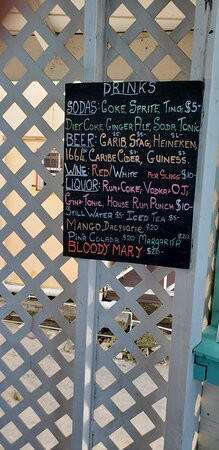 DRINKS
SODAS: COKE SPRITE TING $5-
DIET COKE GINGER ALE, SODA, TONIC
BEER: CARIB, STAG, HEINEKEN,
1664, CARIBE CIDER, GUINESS.
WINE: RED/WHITE PER GLASS $10-
LIQUOR: RUM+COKE, VODKA+OJ,
GIN+TONIC, HOUSE RUM PUNCH $10-
STILL WATER $5- ICED TEA $5-
MANGO DAQUARIE $20
PINA COLADA $20 MARGARITA $20.
BLOODY MARY $20-